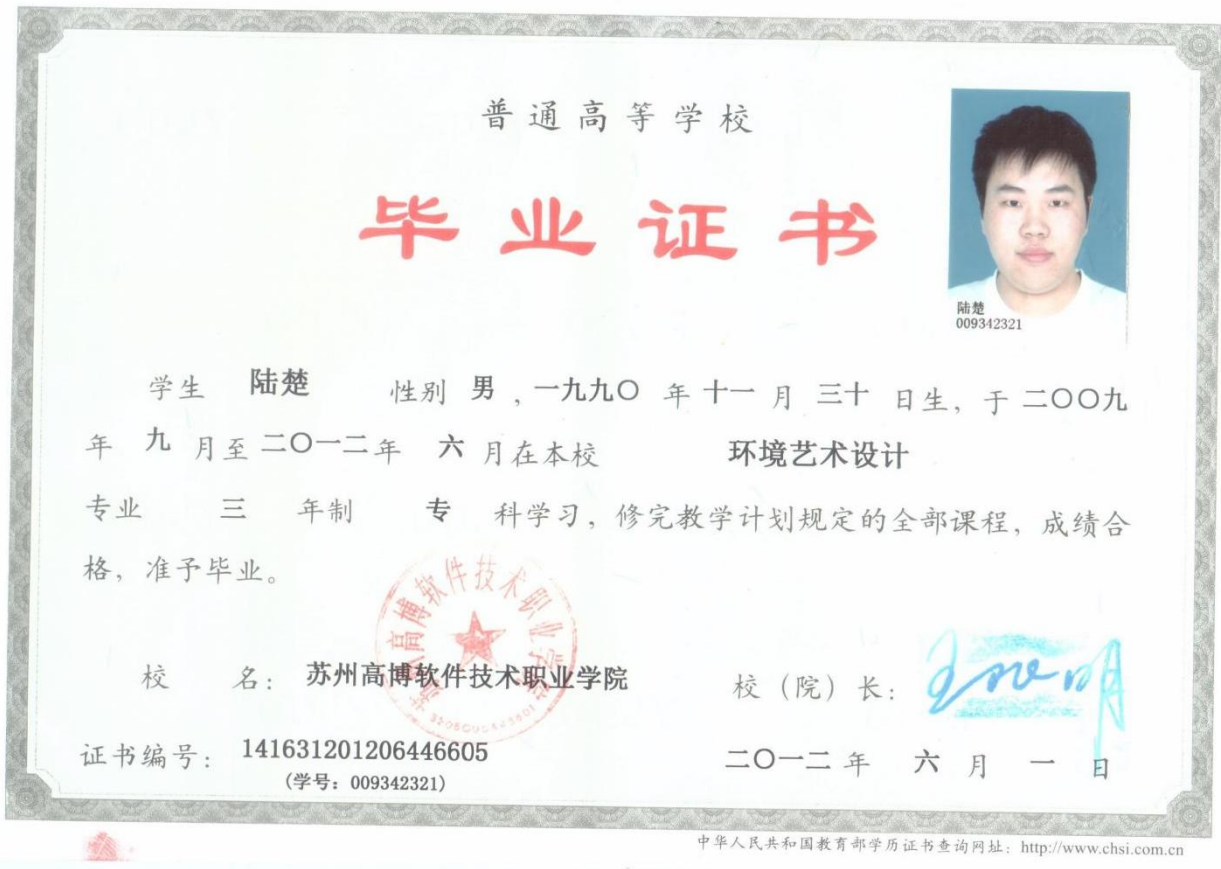 普通高等学校
毕业证书
陆楚
009342321
学生 陆楚 性别 男 , 一九九〇 年 十一 月 三十 日生, 于 二〇〇九
年 九 月至 二〇一二年 六 月在本校 环境艺术设计
专业 三 年制 专 科学习, 修完教学计划规定的全部课程, 成绩合
格, 准予毕业。
苏州高博软件技术职业学院
校 名: 苏州高博软件技术职业学院
校（院）长:
证书编号: 141631201206446605
(学号: 009342321)
二〇一二 年 六 月 一 日
中华人民共和国教育部学历证书查询网址: http://www.chsi.com.cn